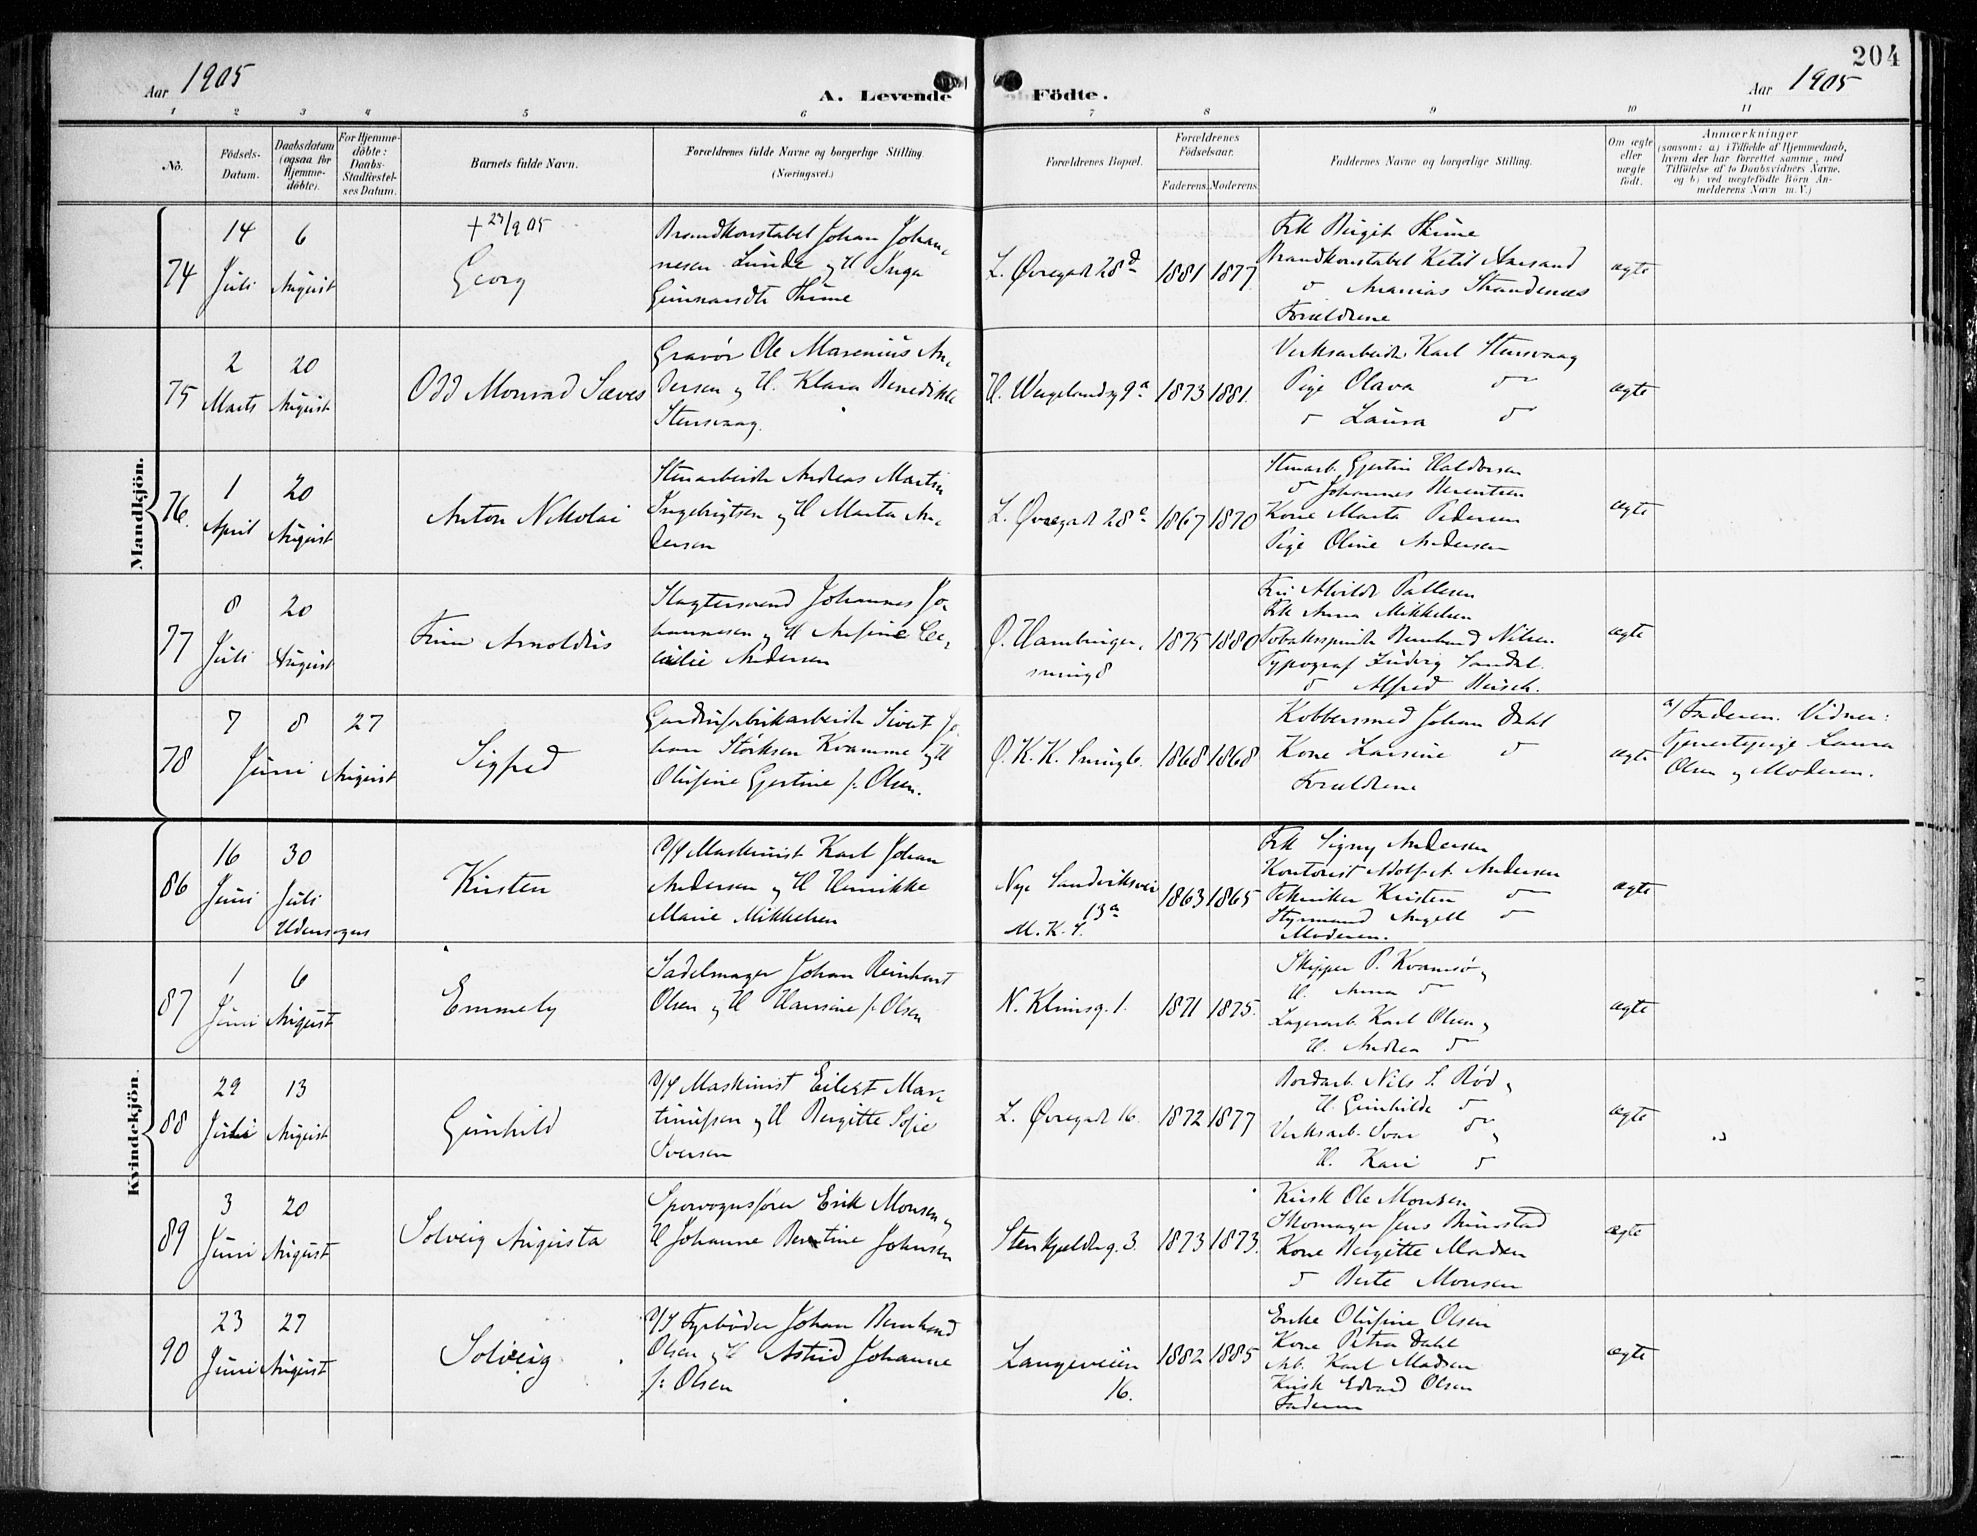 204
Aar 1905
A. Levende Födte.
Aar 1905
1 2 3 4 5 6 7 8 9 10 11
No.
Födsels-Datum.
Daabsdatum (ogsaa for Hjemmedöbte).
For Hjemmedöbte: Daabs-Stadfæstelses Datum.
Barnets fulde Navn.
Forældrenes fulde Navne og borgerlige Stilling (Næringsvei.)
Forældrenes Bopæl.
Forældrenes Födselsaar.
Faderens. Moderens.
Faddernes Navne og borgerlige Stilling.
Om ægte eller uægte födt.
Anmærkninger
(saasom: a) i Tilfælde af Hjemmedaab, hvem der har forrettet samme, med Tilföielse af to Daabsvidners Navne, og b) ved uægtefödte Börn Anmelderens Navn m. V.)
Mandkjön.
74
14 Juli
6 August
+ 23/9 05
Georg
Brandkonstabel Johan Johan-
nesen Lunde og H Inga
Thime
L. Øvregade 28d
1881 1877
Frk Birgit Thime
Brandkonstabel Ketil Aarsand
" Ananias Strandenæs
Forældrene
ægte
75
2 Marts
20 August
Odd Monrad Sæves
Gravør Ole Marenius An-
dersen og H. Klara Benedikte
Stensvaag.
H. Wergelandsg 9a
1873 1881.
Verksarbeider Karl Stensvaag
Pige Olava "
" Laura "
ægte
76.
1 April
20 August
Anton Nikolai
Stenarbeider Andreas Martin
Ingebrigtsen og H Marta An-
dersen
L. Øvregade 28e
1867 1870
Stenarb. Gjertin Haldorsen
" Johannes Berentsen
Kone Marta Pedersen
Pige Oline Andersen
ægte
77
8 Juli
20 August
Finn Arnoldus
Slagtersvend Johannes Jo-
hannesen og H Ansine Ce-
cilie Andersen
Ø. Hamburger-
smug 8
1875 1880
Fru Alvilde Pallesen
Frk Anna Mikkelsen
Tobaksspinder Bernhard Nilsen
Typograf Ludvig Sandal.
" Alfred
ægte
78
7 8 Juni
27 August
Sigfred
Gardinfabrikarbeider Sivert Jo-
han Størksen Kvamme og H
Olufine Gjertine f. Olsen.
Ø. K. K. Smug 6.
1868 1868
Kobbersmed Johan Dahl
Kone Larsine "
Forældrene
ægte
a/ Faderen. Vidner:
Tjenestepige Laura
Olsen og Moderen.
Kvindekjön.
86
16 Juni
30 Juli
Udensogns
Kirsten
D/S Maskinist Karl Johan
Andersen og H Henrikke
Marie Mikkelsen
Nye Sandviksvei
13a
M. K. S.
1863 1865
Frk Signy Andersen
Kontorist Adolf A. Andersen
Tekniker Kristen "
Styrmand Angell "
Moderen.
ægte
87
1 Juni
6 August
Emmely
Sadelmager Johan Reinhart
Olsen og H Hansine f. Olsen
N. Klimsg. 1.
1871 1875.
Skipper P. Kvamsø og
H. Anna "
Lagerarb. Karl Olsen og
H. Andrea "
ægte
88
29 Juli
13 August
Gunhild
D/S Maskinist Eilert Mar-
tinussen og H Bergitte Sofie
Iversen
L. Øvregade 16.
1872 1877
Bordarb. Nils S. Rød og
H. Gunhilde "
Verksarb. Ivar " og
H. Kari "
ægte
89
3 Juni
20 August
Solveig Augusta
Sporvognsfører Erik Monsen og
H Johanne Berntine Johnsen
Stenkjelderg. 3.
1873 1873.
Kusk Ole Monsen
Skomager Jens
Kone Bergitte Madsen
" Berte Monsen
ægte
90
23 Juni
27 August
Solveig
D/S Fyrbøder Johan Bernhard
Olsen og H Astrid Johanne
f. Olsen
Langeveien
16.
1882 1885
Enke Olufine Olsen
Kone Petra Dahl
Arb. Karl Madsen
Kusk Edvard Olsen
Faderen
ægte